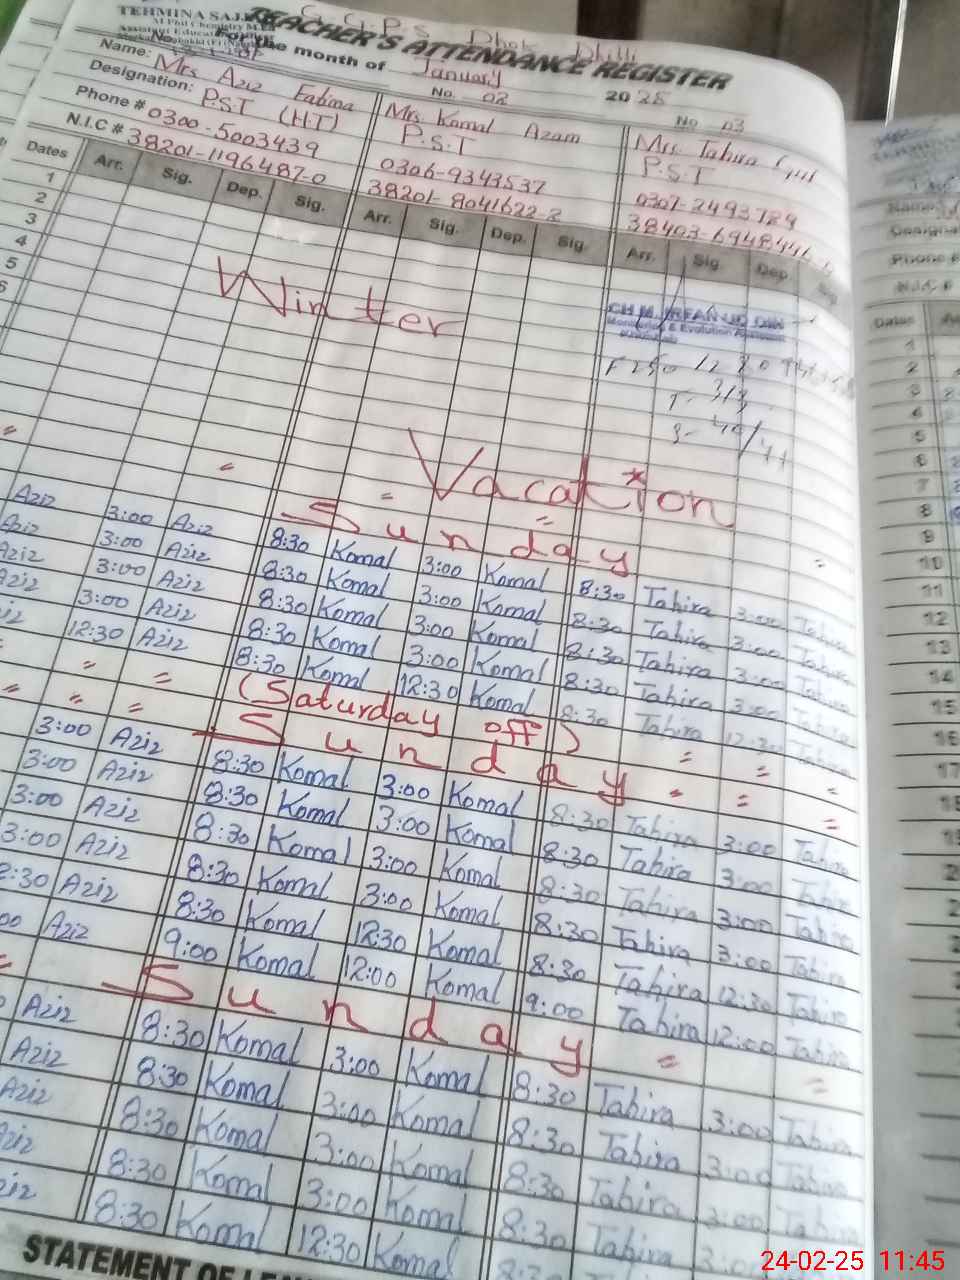 TEHMINA SAJ
M Phil Chemistry M.Ed
G.G.P.S Dhok Dhilli
TEACHER'S ATTENDANCE REGISTER
For the month of January 2025
No. 02
No 03
Name: Mrs Aziz Fatima
Mrs. Komal Azam
Mrs. Tahira Gul
Designation: P.S.T (H.T)
P.S.T
P.S.T
Phone # 0300-5003439
0306-9343537
0307-2493789
N.I.C # 38201-1196487-0
38201-8041622-2
38403-6948446-
Dates Arr. Sig. Dep. Sig. Arr. Sig. Dep. Sig. Arr. Sig. Dep. Sig.
1
2
3
4
5
6
Winter
Vacation
CH M. IRFAN UD DIN
Monitoring & Evolution Assistant
" " " Sunday "
Aziz 3:00 Aziz 8:30 Komal 3:00 Komal 8:30 Tahira 3:00 Tahira
Aziz 3:00 Aziz 8:30 Komal 3:00 Komal 8:30 Tahira 3:00 Tahira
Aziz 3:00 Aziz 8:30 Komal 3:00 Komal 8:30 Tahira 3:00 Tahira
Aziz 3:00 Aziz 8:30 Komal 3:00 Komal 8:30 Tahira 3:00 Tahira
12:30 Aziz 8:30 Komal 12:30 Komal 8:30 Tahira 12:30 Tahira
" " (Saturday off) " " "
" " " Sunday " " "
3:00 Aziz 8:30 Komal 3:00 Komal 8:30 Tahira 3:00 Tahira
3:00 Aziz 8:30 Komal 3:00 Komal 8:30 Tahira 3:00 Tahira
3:00 Aziz 8:30 Komal 3:00 Komal 8:30 Tahira 3:00 Tahira
3:00 Aziz 8:30 Komal 3:00 Komal 8:30 Tahira 3:00 Tahira
2:30 Aziz 8:30 Komal 12:30 Komal 8:30 Tahira 12:30 Tahira
00 Aziz 9:00 Komal 12:00 Komal 9:00 Tahira 12:00 Tahira
" Sunday " "
Aziz 8:30 Komal 3:00 Komal 8:30 Tahira 3:00 Tahira
Aziz 8:30 Komal 3:00 Komal 8:30 Tahira 3:00 Tahira
Aziz 8:30 Komal 3:00 Komal 8:30 Tahira
Aziz 8:30 Komal 3:00 Komal 8:30 Tahira
8:30 Komal 12:30 Komal
STATEMENT OF
Dates
1
2
3
4
5
6
7
8
9
10
11
12
13
14
15
16
17
24-02-25 11:45